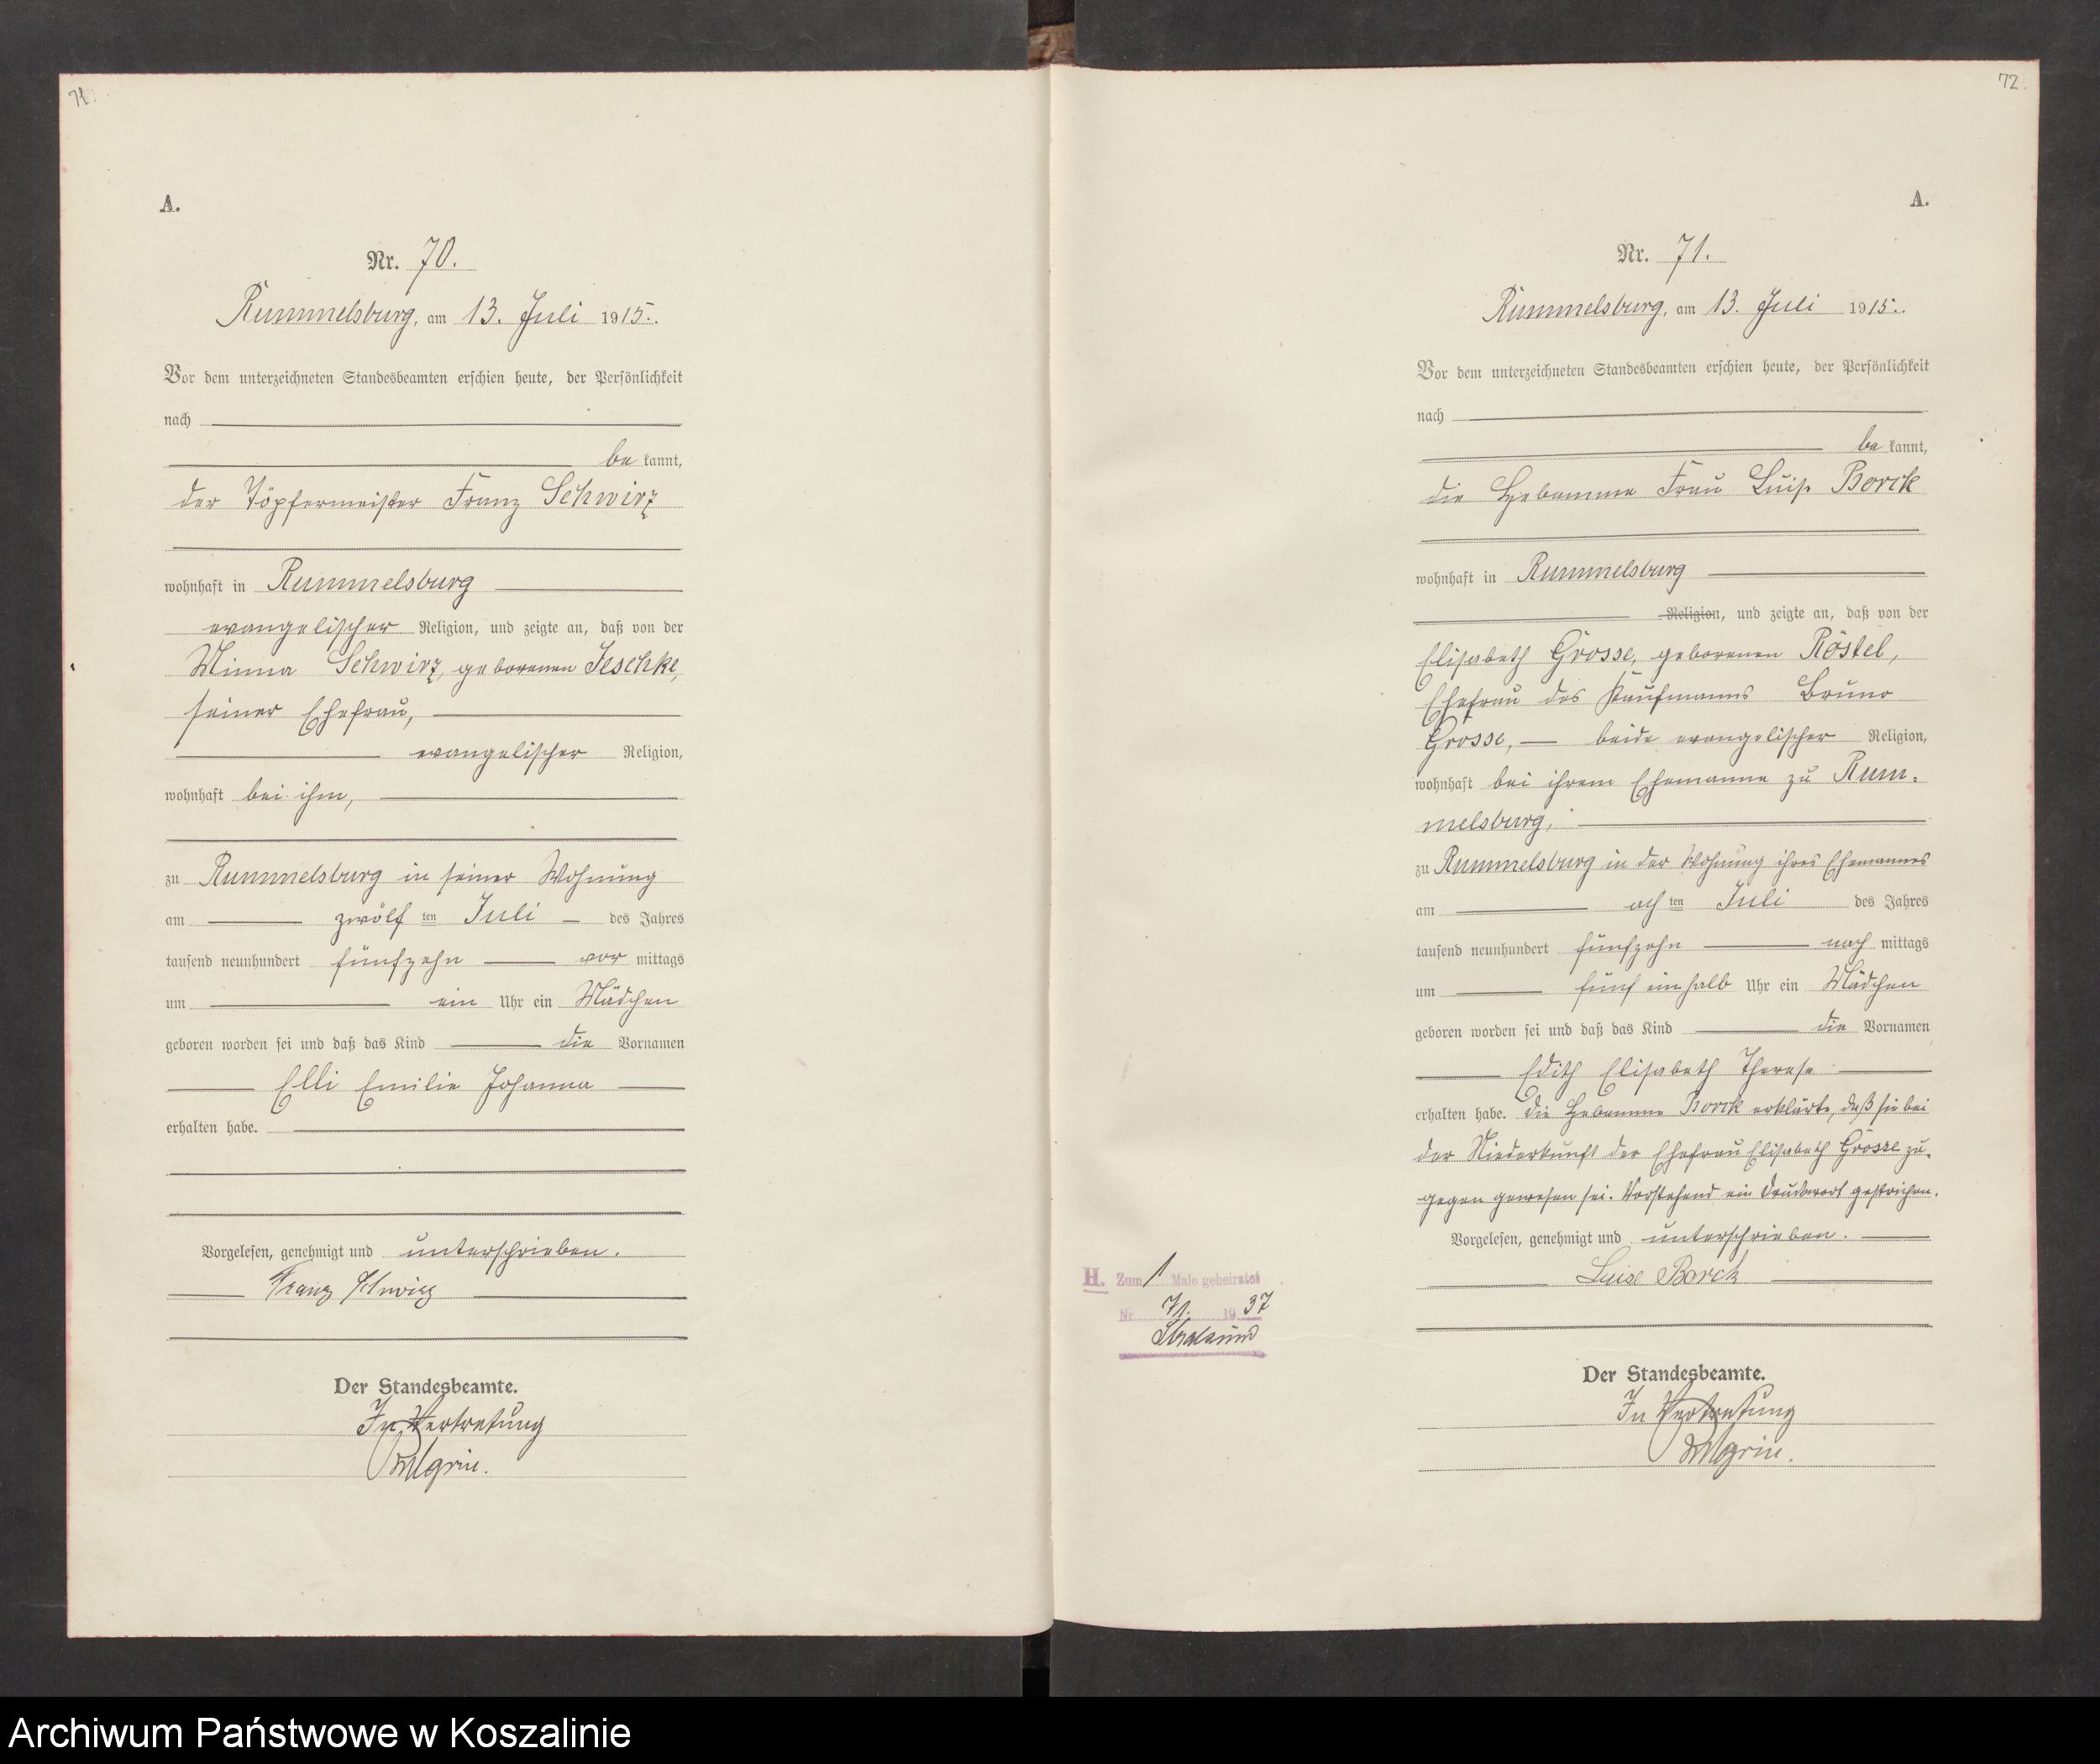 71.
A.
Nr. 70.
Rummelsburg, am 13. Juli 1915.
Vor dem unterzeichneten Standesbeamten erschien heute, der Persönlichkeit
nach
be kannt,
der Töpfermeister Franz Schwirz
wohnhaft in Rummelsburg
evangelischer Religion, und zeigte an, daß von der
Minna Schwirz, geborenen Jeschke,
seiner Ehefrau,
evangelischer Religion,
wohnhaft bei ihm,
zu Rummelsburg in seiner Wohnung
am zwölf ten Juli des Jahres
tausend neunhundert fünfzehn vor mittags
um ein Uhr ein Mädchen
geboren worden sei und daß das Kind die Vornamen
Elli Emilie Johanna
erhalten habe.
Vorgelesen, genehmigt und unterschrieben.
Franz Schwirz
Der Standesbeamte.
In Vertretung
72.
A.
Nr. 71.
Rummelsburg, am 13. Juli 1915.
Vor dem unterzeichneten Standesbeamten erschien heute, der Persönlichkeit
nach
be kannt,
die Hebamme Frau Luise Borck
wohnhaft in Rummelsburg
Religion, und zeigte an, daß von der
Elisabeth Grosse, geborenen Röstel,
Ehefrau des Kaufmanns Bruno
Grosse, beide evangelischer Religion,
wohnhaft bei ihrem Ehemanne zu Rum-
melsburg,
zu Rummelsburg in der Wohnung ihres Ehemannes
am ach ten Juli des Jahres
tausend neunhundert fünfzehn nach mittags
um fünf einhalb Uhr ein Mädchen
geboren worden sei und daß das Kind die Vornamen
Edith Elisabeth Therese
erhalten habe. Die Hebamme Borck erklärte, daß sie bei
der Niederkunft der Ehefrau Elisabeth Grosse zu-
gegen gewesen sei. Vorstehend ein Druckwort gestrichen.
Vorgelesen, genehmigt und unterschrieben.
Luise Borck
H. Zum 1 Male geheiratet
Nr. 71. 19 37
Stralsund
Der Standesbeamte.
In Vertretung
Archiwum Państwowe w Koszalinie